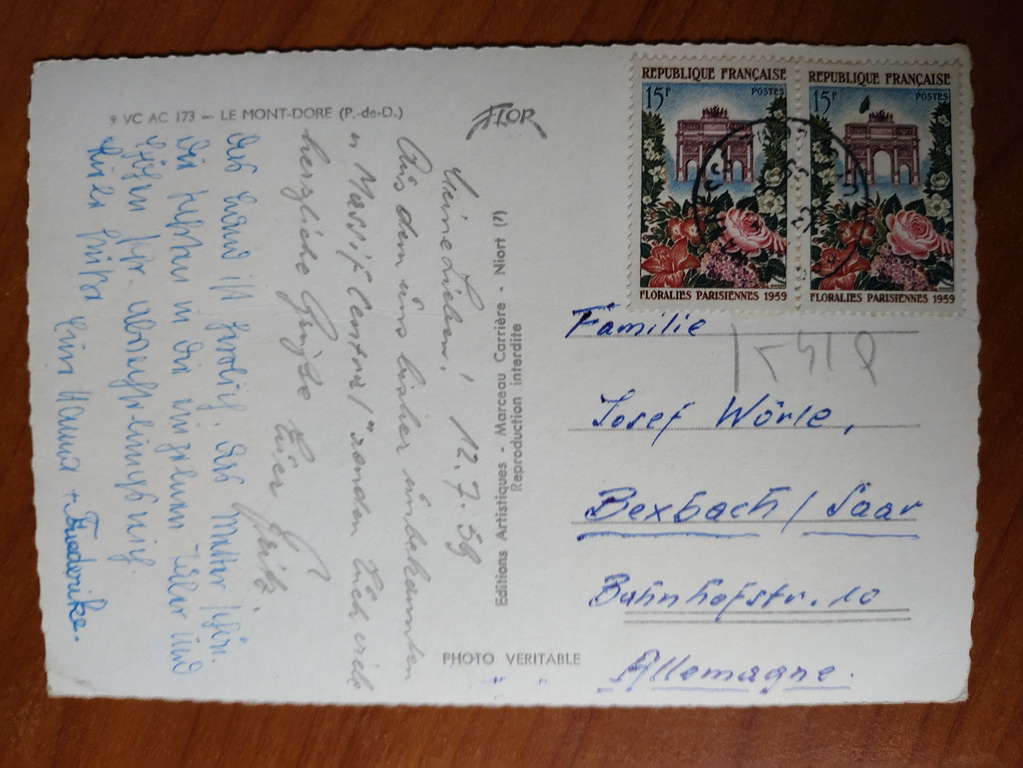 9 VC AC 173 — LE MONT-DORE (P.-de-D.)
FLOR
Meine Lieben! 12.7.59
Aus dem uns bisher unbekannten
"Massif Central" senden Euch viele
herzliche Grüße Euer Fritz
Das Land ist herrlich, das Wetter schön.
Die Fahrten in die einzelnen Täler und
Höhen sehr abwechslungsreich.
Hanna + Friederike.
Editions Artistiques - Marceau Carrière - Niort (?)
Reproduction interdite
PHOTO VERITABLE
REPUBLIQUE FRANÇAISE
15F POSTES
FLORALIES PARISIENNES 1959
REPUBLIQUE FRANÇAISE
15F POSTES
FLORALIES PARISIENNES 1959
Familie
Josef Wörle,
Bexbach / Saar
Bahnhofstr. 10
Allemagne.